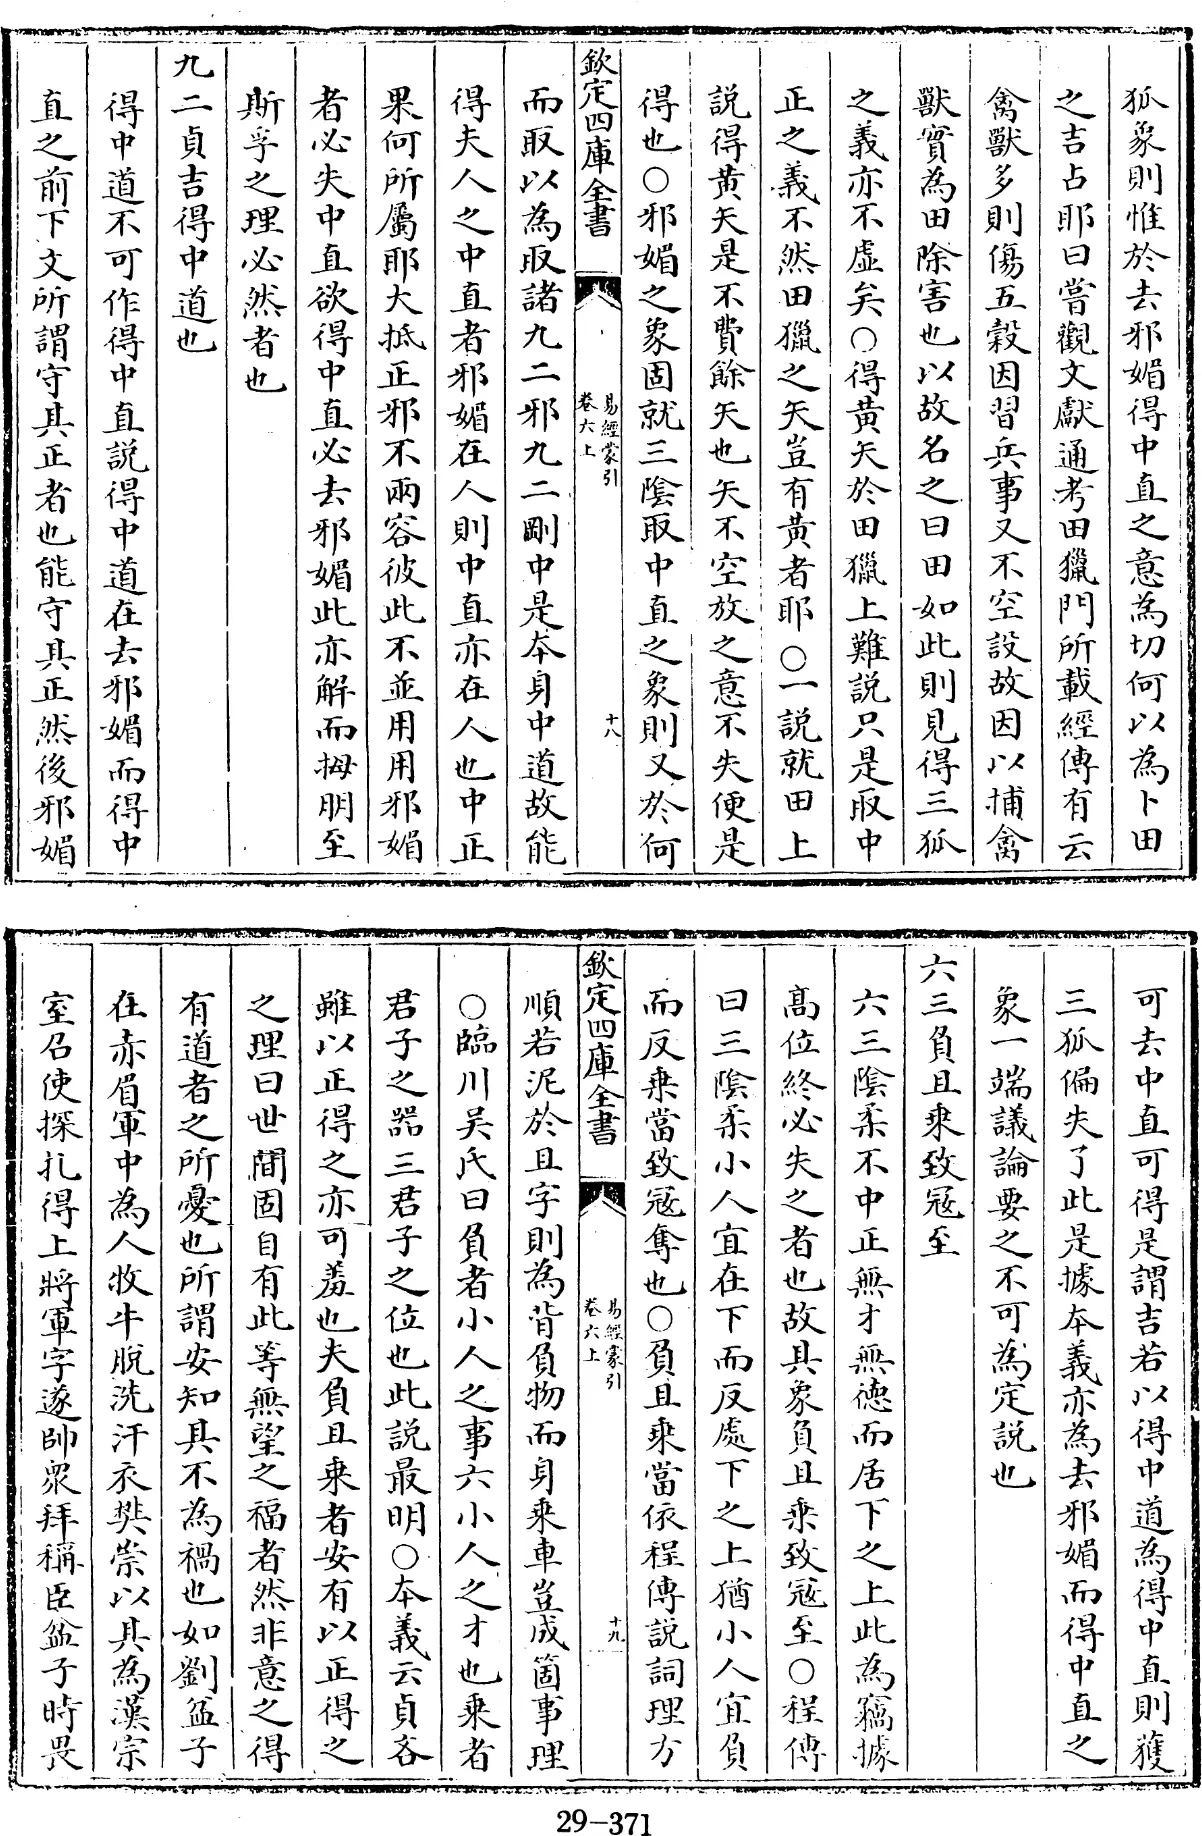 狐象則惟於去邪媚得中直之意為切何以為卜田
之吉占耶曰嘗觀文獻通考田獵門所載經傳有云
禽獸多則傷五穀因習兵事又不空設故因以捕禽
獸實為田除害也以故名之曰田如此則見得三狐
之義亦不虛矣○得黄矢於田獵上難説只是取中
正之義不然田獵之矢豈有黄者耶○一説就田上
説得黄矢是不費餘矢也矢不空放之意不失便是
得也○邪媚之象固就三隂取中直之象則又於何
欽定四庫全書
易經蒙引
卷六上
十八
而取以為取諸九二邪九二剛中是本身中道故能
得夫人之中直者邪媚在人則中直亦在人也中正
果何所屬耶大抵正邪不兩容彼此不並用用邪媚
者必失中直欲得中直必去邪媚此亦解而拇朋至
斯孚之理必然者也
九二貞吉得中道也
得中道不可作得中直説得中道在去邪媚而得中
直之前下文所謂守其正者也能守其正然後邪媚
可去中直可得是謂吉若以得中道為得中直則獲
三狐偏失了此是據本義亦為去邪媚而得中直之
象一端議論要之不可為定説也
六三負且乗致冦至
六三隂柔不中正無才無德而居下之上此為竊據
髙位終必失之者也故其象負且乗致冦至○程傳
曰三隂柔小人宜在下而反處下之上猶小人宜負
而反乗當致冦奪也○負且乗當依程傳説詞理方
欽定四庫全書
易經蒙引
卷六上
十九
順若泥於且字則為背負物而身乗車豈成箇事理
○臨川吴氏曰負者小人之事六小人之才也乗者
君子之器三君子之位也此説最明○本義云貞吝
雖以正得之亦可羞也夫負且乗者安有以正得之
之理曰世間固自有此等無望之福者然非意之得
有道者之所憂也所謂安知其不為禍也如劉盆子
在赤眉軍中為人牧牛脱洗汗衣樊崇以其為漢宗
室召使探札得上將軍字遂帥衆拜稱臣盆子時畏
29-371